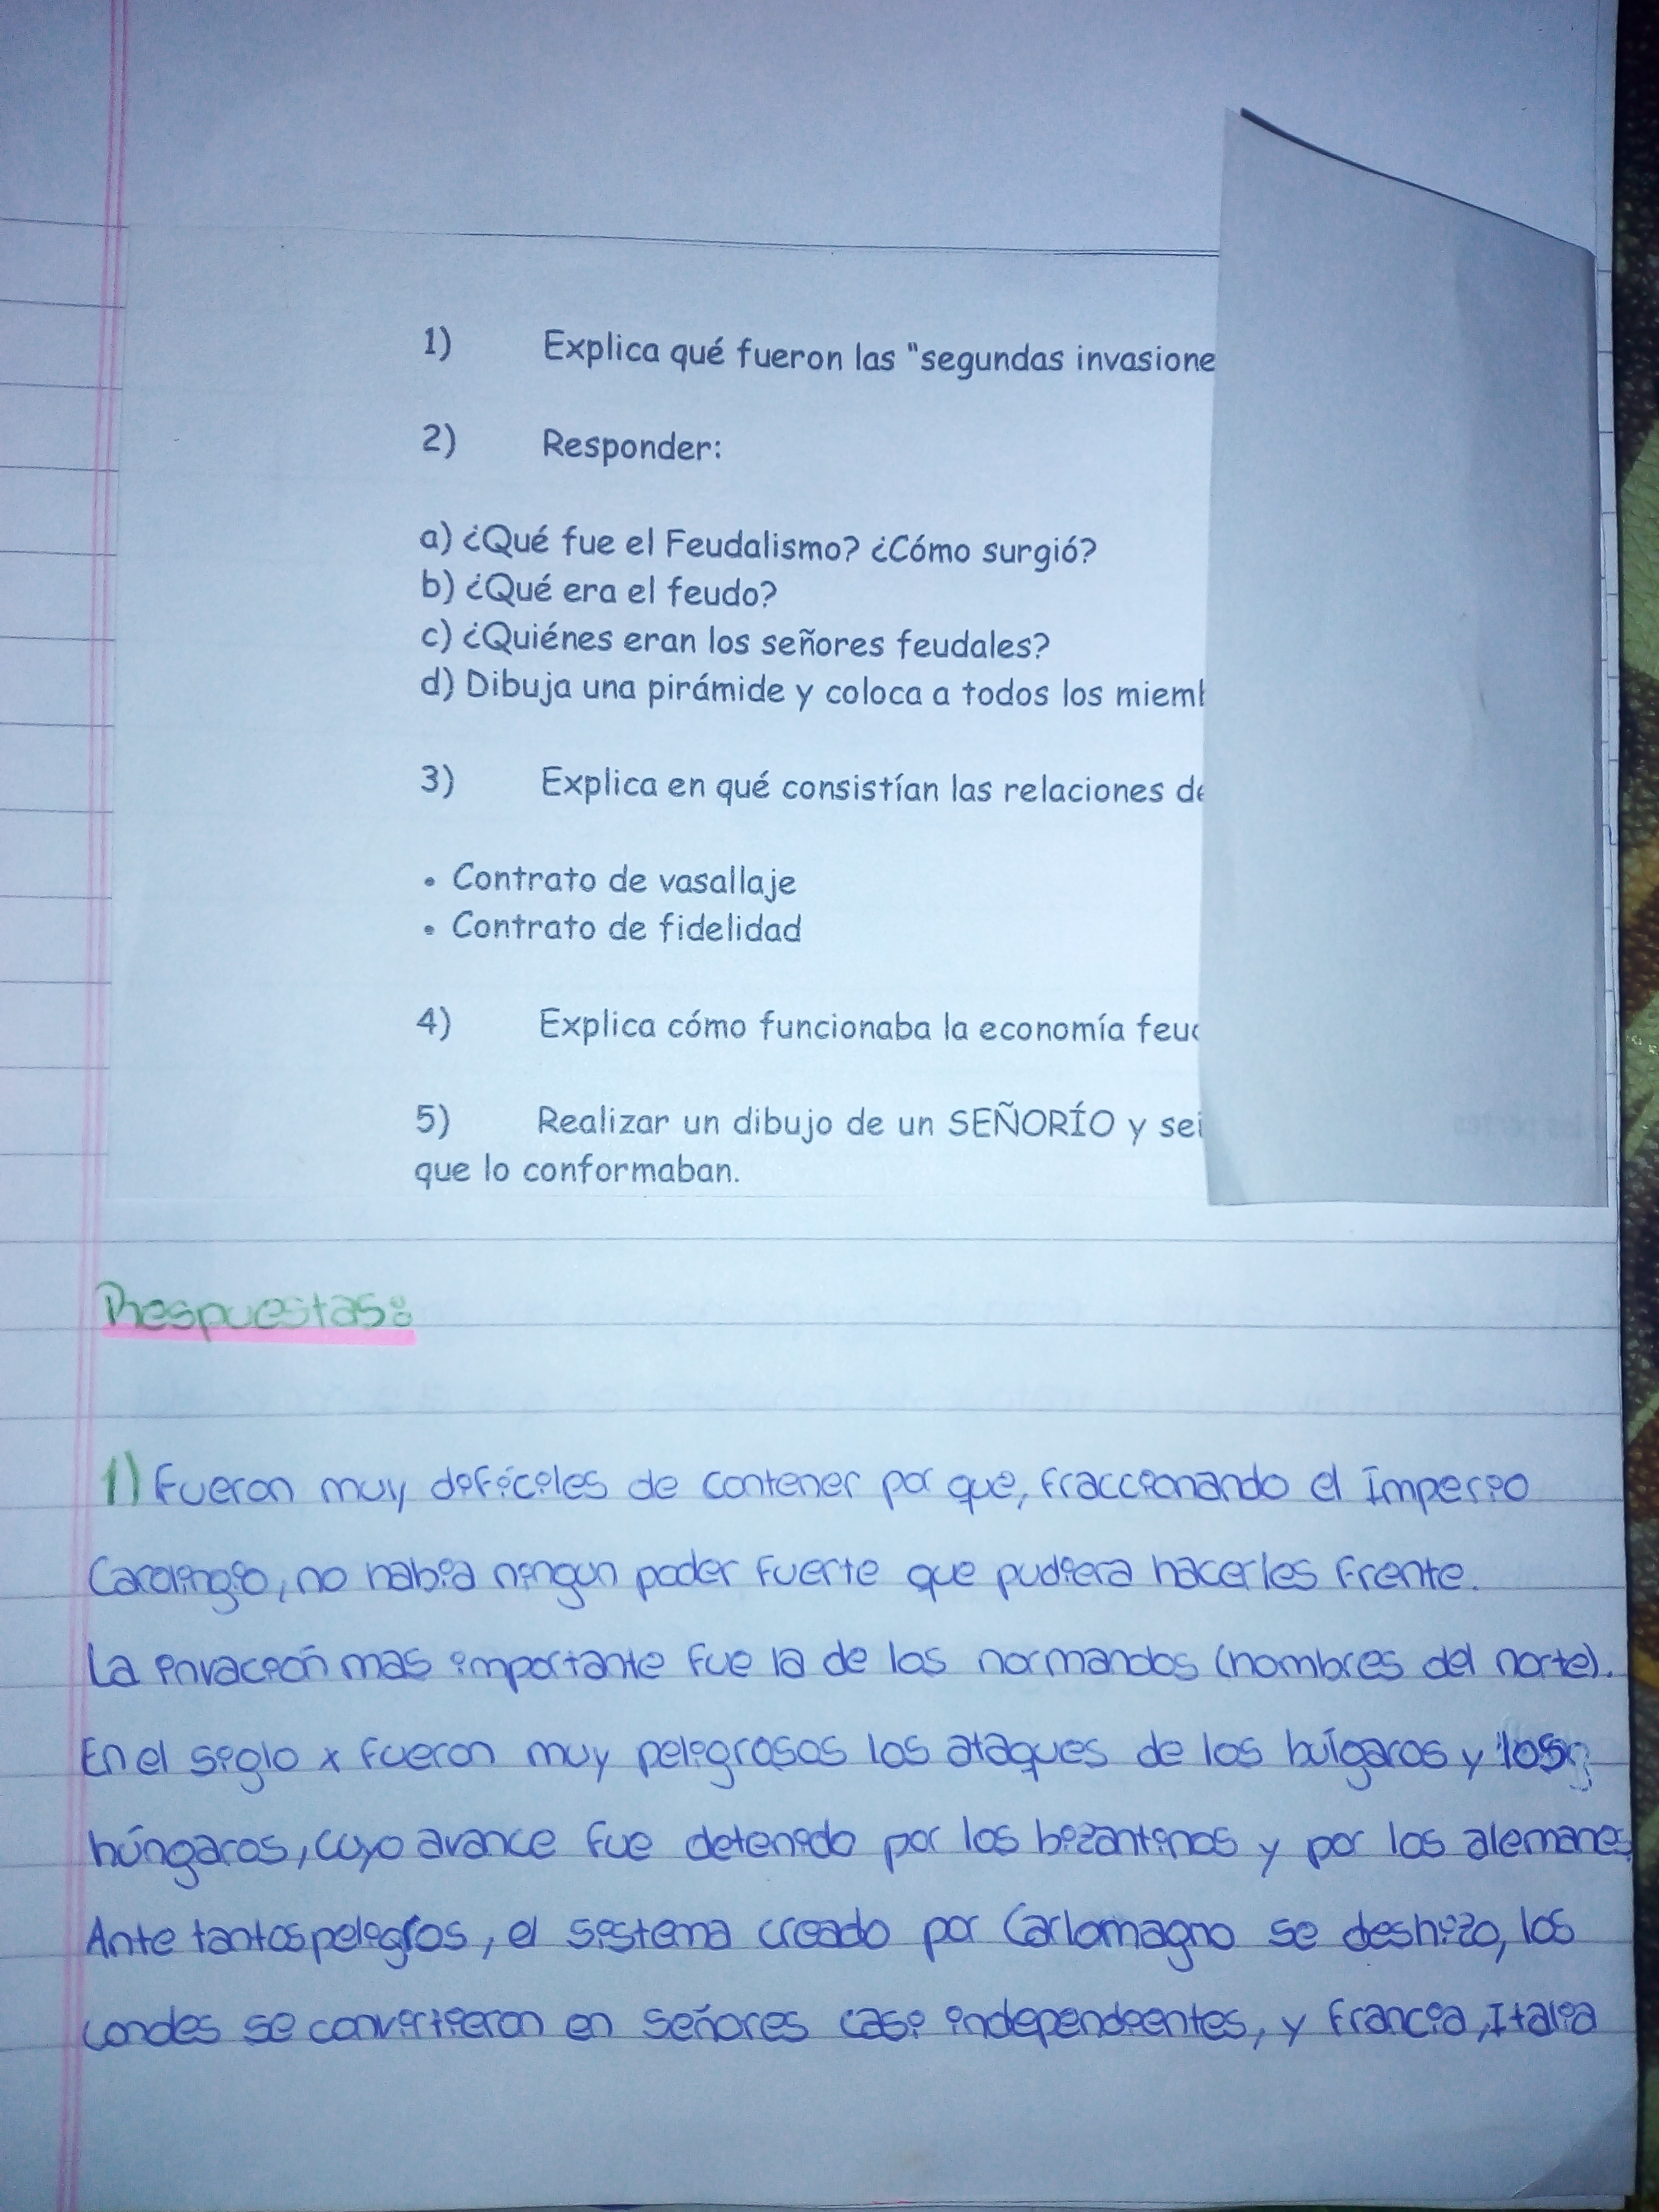 1) Explica qué fueron las "segundas invasione
2) Responder:
a) ¿Qué fue el Feudalismo? ¿Cómo surgió?
b) ¿Qué era el feudo?
c) ¿Quiénes eran los señores feudales?
d) Dibuja una pirámide y coloca a todos los miemb
3) Explica en qué consistían las relaciones de
• Contrato de vasallaje
• Contrato de fidelidad
4) Explica cómo funcionaba la economía feud
5) Realizar un dibujo de un SEÑORÍO y señ
que lo conformaban.
Respuestas:
1) Fueron muy difíciles de contener por que, fraccionando el Imperio
Carolingio, no habia ningun poder fuerte que pudiera hacerles frente.
La invación mas importante fue la de los normandos (hombres del norte).
En el siglo x fueron muy peligrosos los ataques de los búlgaros y los
húngaros, cuyo avance fue detenido por los bizantinos y por los alemanes
Ante tantos peligros, el sistema creado por Carlomagno se deshizo, los
condes se convirtieron en señores casi independientes, y Francia, Italia